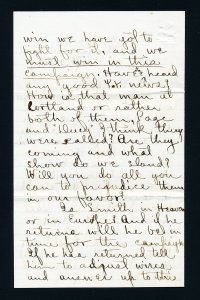 win we have got to
fight for it, and we
must win in this
campaign. Have heard
any good Yor news?
How is that man at
Cortland or rather
both of them, Page
and "Duey" I think they
were called? Are they
coming and what
show do we stand?
Will you do all you
can to prejudice them
in our favor?
Is Smith in Heaven
or in Europe? And if he
returns will he be in
time for the campaign
If he has returned tell
him to adjust wires,
and answer up to this